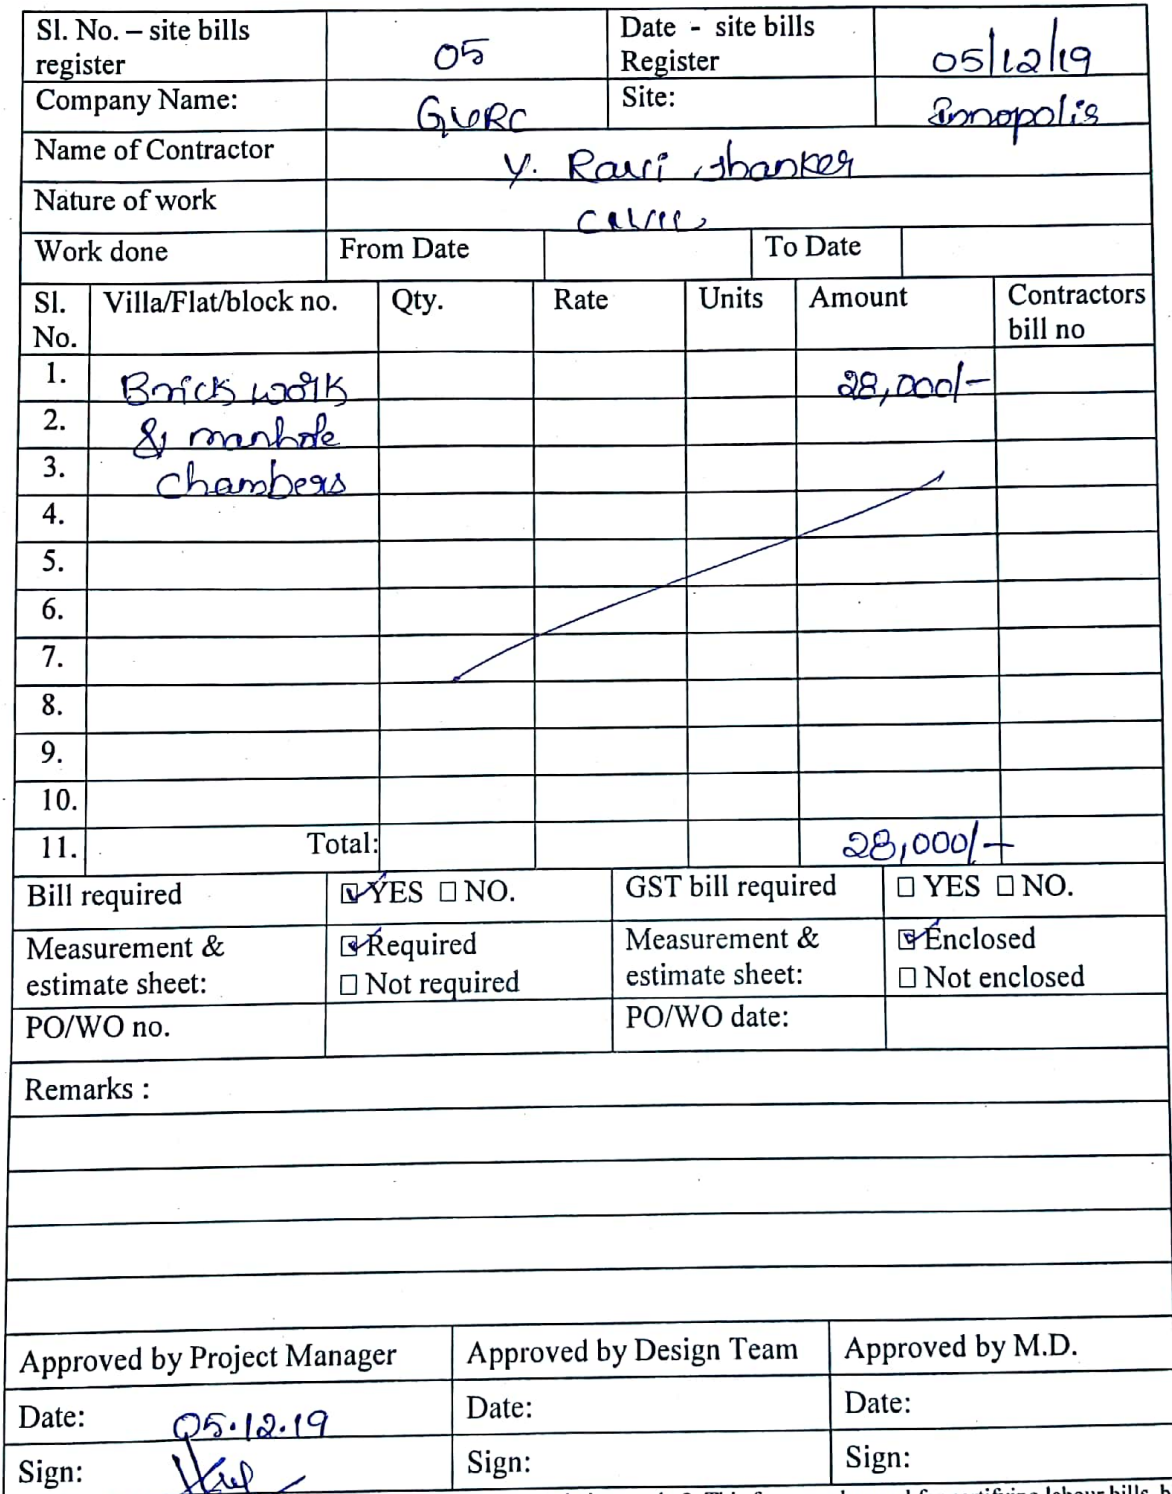 Sl. No. – site bills register 05 Date - site bills Register 05/12/19
Company Name: GVRC Site: Innopolis
Name of Contractor Y. Ravi shanker
Nature of work civil
Work done From Date To Date
Sl. No. Villa/Flat/block no. Qty. Rate Units Amount Contractors bill no
1. Brick work 28,000/-
2. & manhole
3. chambers
4.
5.
6.
7.
8.
9.
10.
11. Total: 28,000/-
Bill required ☑ YES ☐ NO. GST bill required ☐ YES ☐ NO.
Measurement & estimate sheet: ☑ Required ☐ Not required Measurement & estimate sheet: ☑ Enclosed ☐ Not enclosed
PO/WO no. PO/WO date:
Remarks :
Approved by Project Manager Approved by Design Team Approved by M.D.
Date: 05.12.19 Date: Date:
Sign: Sign: Sign: